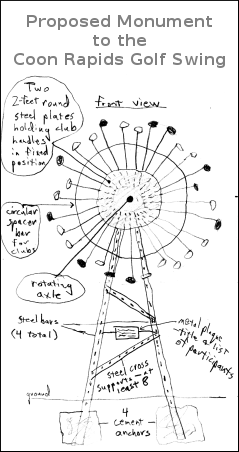 Proposed Monument
to the
Coon Rapids Golf Swing
Two
2-feet round
steel plates
holding club
handles
in fixed
position
front view
circular
spacer
bar
for
clubs
rotating
axle
steel bars
(4 total)
metal plaque
title & list
of participants
steel cross
supports—at
least 8
ground
4
cement
anchors